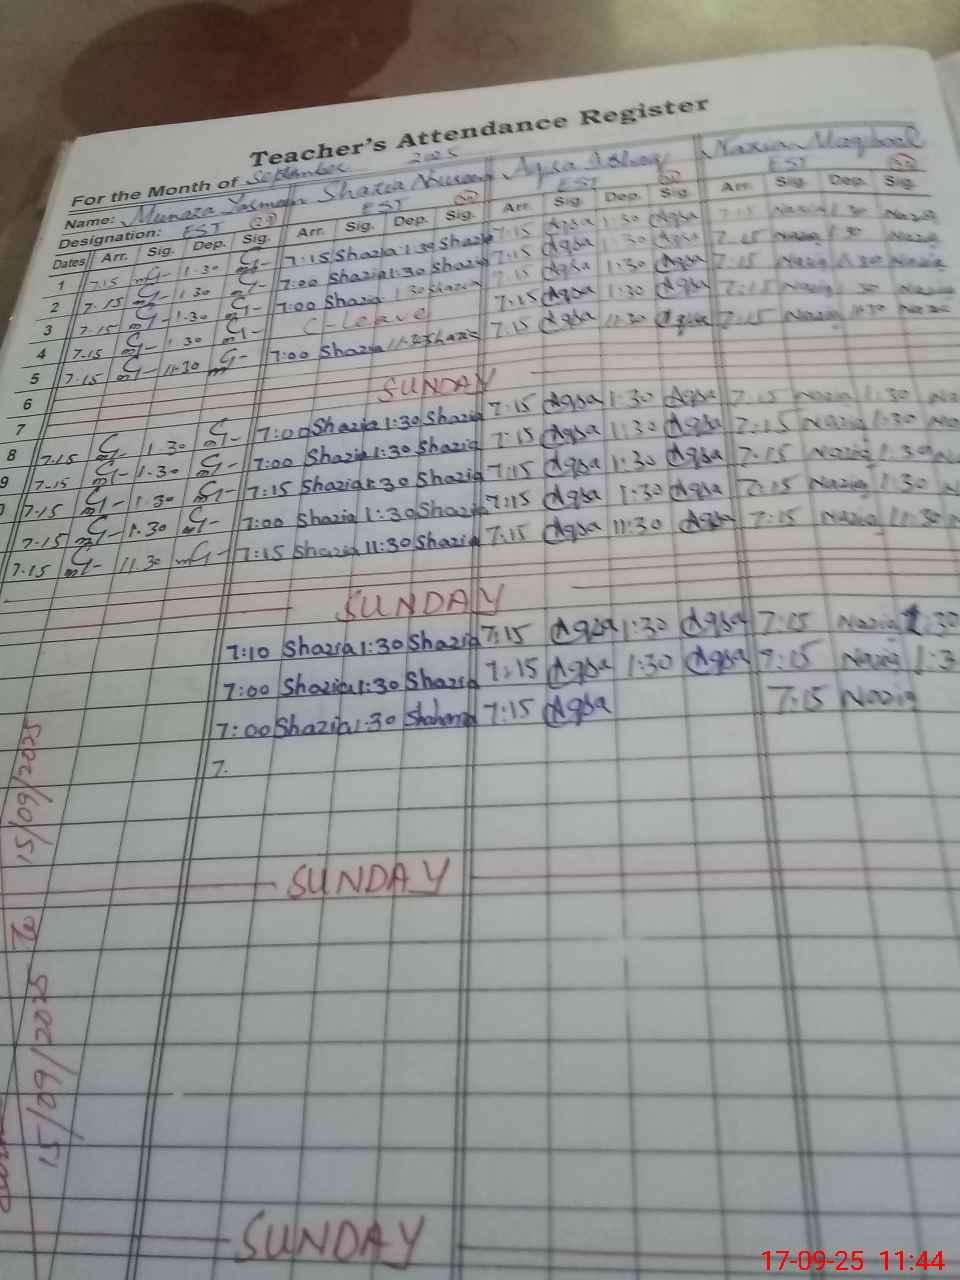 Teacher's Attendance Register
For the Month of September 2025
Name: Munaza Yasmeen Shazia Aqsa Nazia Maqbool
Designation: EST EST EST EST
Dates Arr. Sig. Dep. Sig. Arr. Sig. Dep. Sig. Arr. Sig. Dep. Sig. Arr. Sig. Dep. Sig.
1 7.15 1.30 7:15 Shazia 1:30 Shazia 7:15 Aqsa 1:30 Aqsa 7:15 Nazia 1:30 Nazia
2 7.15 1.30 7:00 Shazia 1:30 Shazia 7:15 Aqsa 1:30 Aqsa 7:15 Nazia 1:30 Nazia
3 7.15 1.30 7:00 Shazia 1:30 Shazia 7:15 Aqsa 1:30 Aqsa 7:15 Nazia 1:30 Nazia
4 7.15 1.30 C-Leave 7:15 Aqsa 1:30 Aqsa 7:15 Nazia 1:30 Nazia
5 7.15 11.30 7:00 Shazia Shazia 7:15 Aqsa 11:30 Aqsa 7:15 Nazia 11:30 Nazia
6
7 SUNDAY
8 7.15 1.30 7:00 Shazia 1:30 Shazia 7:15 Aqsa 1:30 Aqsa 7:15 Nazia 1:30
9 7.15 1.30 7:00 Shazia 1:30 Shazia 7:15 Aqsa 1:30 Aqsa 7:15 Nazia 1:30
7.15 1.30 7:15 Shazia 1:30 Shazia 7:15 Aqsa 1:30 Aqsa 7:15 Nazia 1:30
7.15 1.30 7:00 Shazia 1:30 Shazia 7:15 Aqsa 1:30 Aqsa 7:15 Nazia 1:30
7.15 11.30 7:15 Shazia 11:30 Shazia 7:15 Aqsa 11:30 Aqsa 7:15 Nazia 11:30
SUNDAY
7:10 Shazia 1:30 Shazia 7:15 Aqsa 1:30 Aqsa 7:15 Nazia 1:30
7:00 Shazia 1:30 Shazia 7:15 Aqsa 1:30 Aqsa 7:15 Nazia 1:3
7:00 Shazia 1:30 7:15 Aqsa 7:15 Nazia
7.
SUNDAY
SUNDAY
15/09/2025 To
15/09/2025
17-09-25 11:44